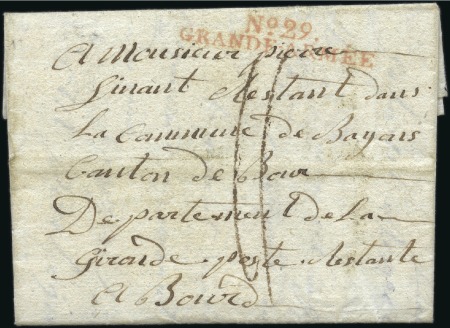 No. 29.
GRANDE ARMÉE
A Monsieur pierre
finant Restant dans
La Commune de Bayons
Canton de Bour
Departement de La
Girande poste Restante
A Bourd